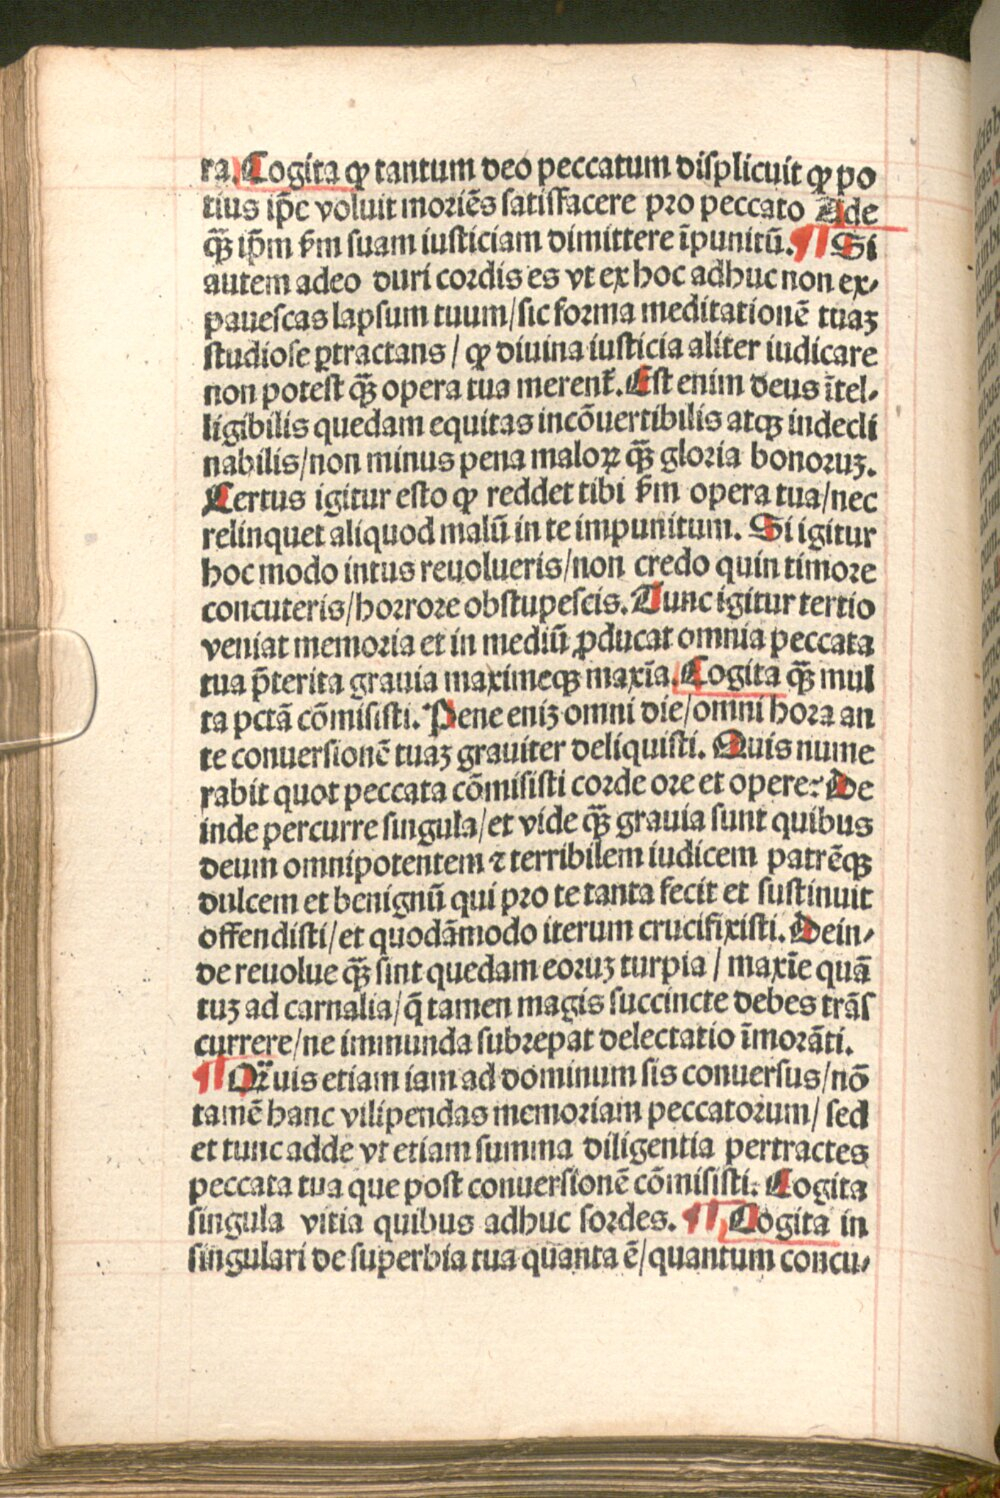 ra. Cogita ꝙ tantum deo peccatum displicuit ꝙ po
tius ip̄e voluit moriēs satisfacere pro peccato Ade
q̄ꝫ ip̄m ẜm suam iusticiam dimittere īpunitū. ¶ Si
autem adeo duri cordis es vt ex hoc adhuc non ex-
pauescas lapsum tuum/sic forma meditationē tuaꝫ
studiose ꝑtractans/ ꝙ diuina iusticia aliter iudicare
non potest q̄ꝫ opera tua merent᷑. Est enim deus ītel-
ligibilis quedam equitas incōuertibilis atqꝫ indecli
nabilis/non minus pena maloꝝ q̄ꝫ gloria bonoruꝫ.
Certus igitur esto ꝙ reddet tibi ẜm opera tua/nec
relinquet aliquod malū in te impunitum. Si igitur
hoc modo intus reuolueris/non credo quin timore
concuteris/horrore obstupescis. Tunc igitur tertio
veniat memoria et in mediū ꝓducat omnia peccata
tua p̄terita grauia maximeqꝫ maxīa. Cogita q̄ꝫ mul
ta pctā cōmisisti. Pene eniꝫ omni die/omni hora an
te conuersionē tuaꝫ grauiter deliquisti. Quis nume
rabit quot peccata cōmisisti corde ore et opere: De
inde percurre singula/et vide q̄ꝫ grauia sunt quibus
deum omnipotentem ⁊ terribilem iudicem patrēqꝫ
dulcem et benignū qui pro te tanta fecit et sustinuit
offendisti/et quodāmodo iterum crucifixisti. Dein-
de reuolue q̄ꝫ sint quedam eoruꝫ turpia/ maxīe quā
tuꝫ ad carnalia/q̄ tamen magis succincte debes trās
currere/ne immunda subrepat delectatio īmorāti.
¶ Qꝫuis etiam iam ad dominum sis conuersus/nō
tamē hanc vilipendas memoriam peccatorum/ sed
et tunc adde vt etiam summa diligentia pertractes
peccata tua que post conuersionē cōmisisti: Cogita
singula vitia quibus adhuc sordes. ¶ Cogita in
singulari de superbia tua quanta ē/quantum concu-